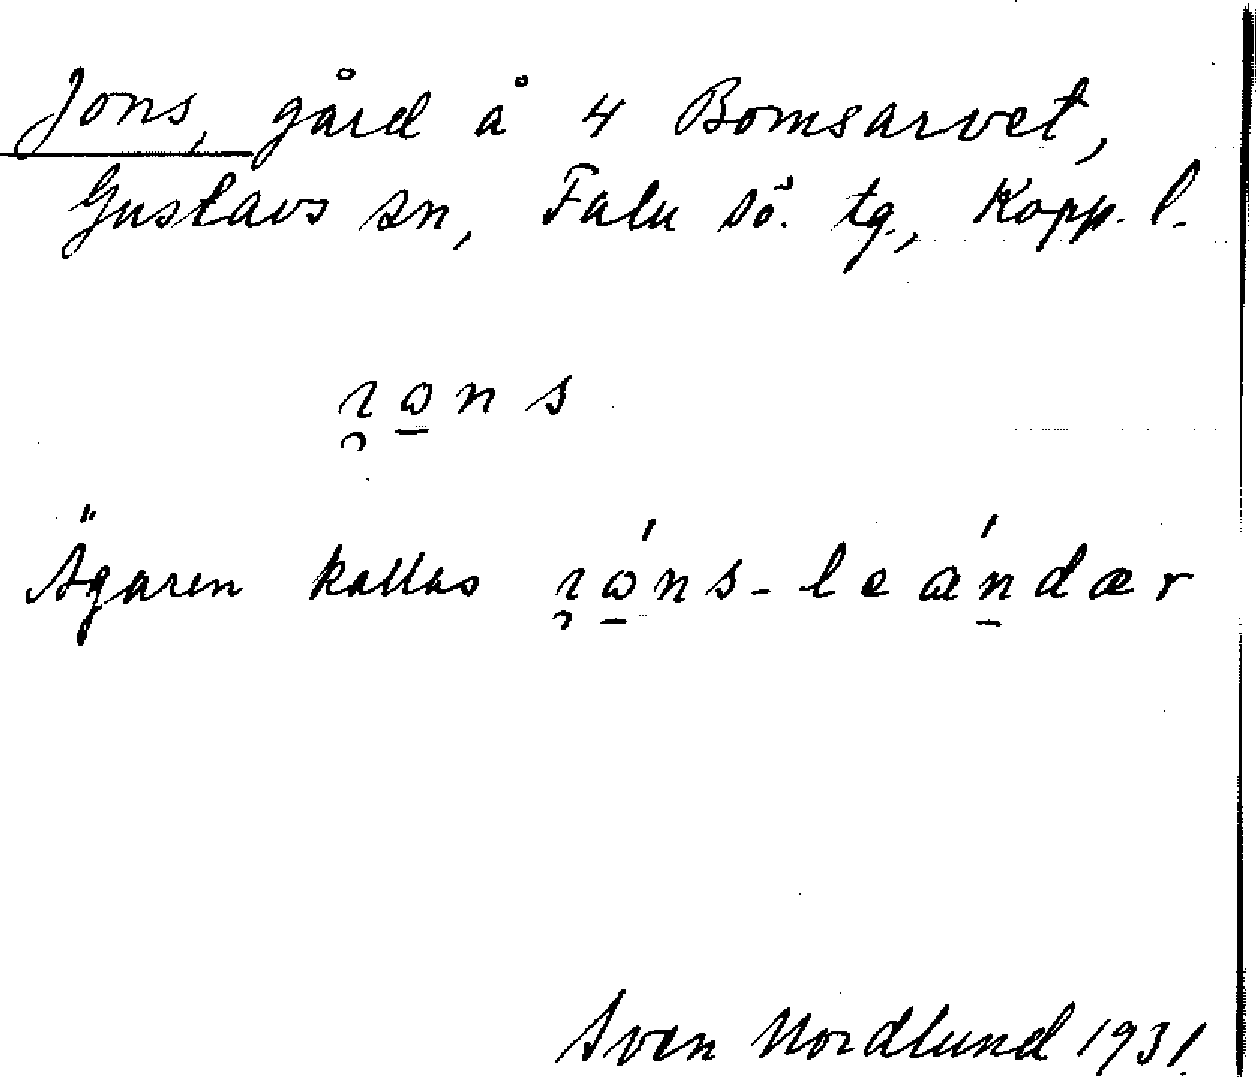 Jons, gård å 4 Bomsarvet,
Gustavs sn, Falu sö. tg., Kopp. l.
Ägaren kallas
Sven Nordlund 1931.